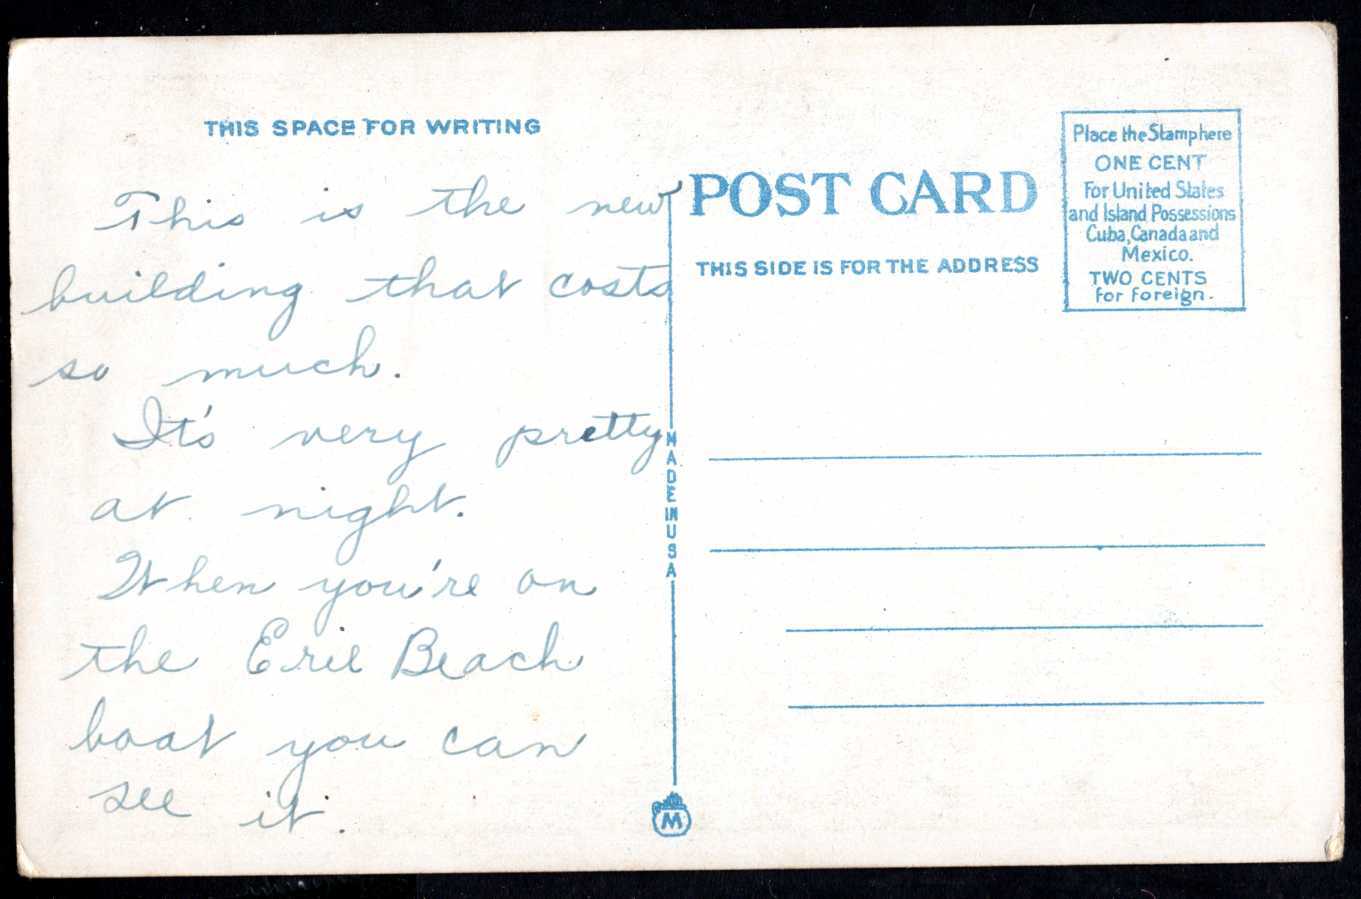 THIS SPACE FOR WRITING
This is the new
building that costs
so much.
It's very pretty
at night.
When you're on
the Erie Beach
boat you can
see it.
MADE IN USA
M
POST CARD
THIS SIDE IS FOR THE ADDRESS
Place the Stamp here
ONE CENT
For United States
and Island Possessions
Cuba, Canada and
Mexico.
TWO CENTS
for foreign.